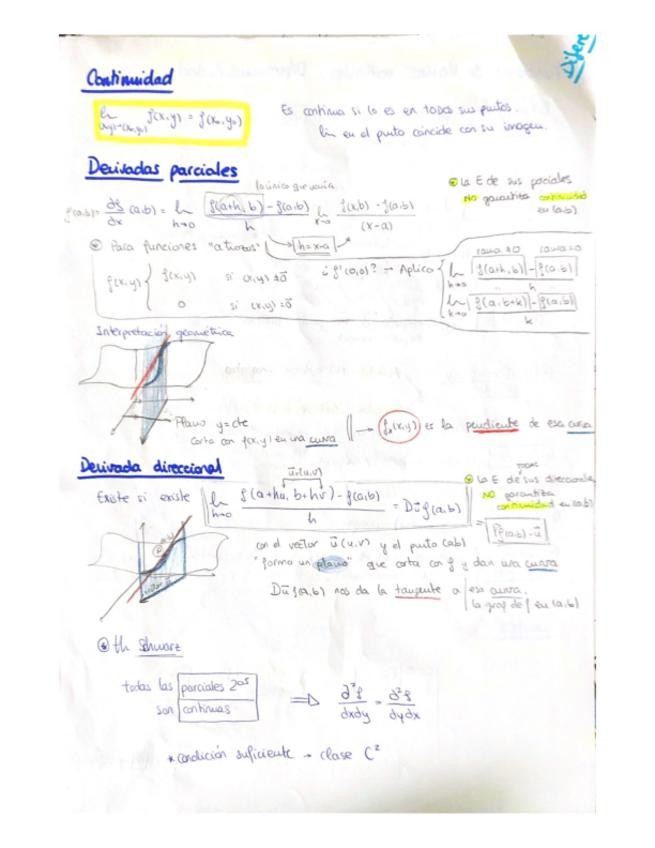 Difere
Continuidad
lim f(x,y) = f(x₀,y₀)
(x,y)→(x₀,y₀)
Es continua si lo es en TODOS sus puntos.
lim en el punto coincide con su imagen.
Derivadas parciales
lo único que varía
∂f/∂x (a,b) = lim h→0 f(a+h, b) - f(a,b) / h
lim x→a f(x,b) - f(a,b) / (x-a)
La E de sus parciales
NO garantiza continuidad
en (a,b)
h=x-a
Para funciones "a trozos"
f(x,y) { f(x,y) si (x,y) ≠ 0⃗
0 si (x,y) = 0⃗
¿f'(0,0)? → Aplico
lim h→0 f(a+h, b) - f(a,b) / h
lim k→0 f(a, b+k) - f(a,b) / k
Interpretación geométrica
Plano y=cte
corta con f(x,y) en una curva
→ (x,y) es la pendiente de esa curva
Derivada direccional
u⃗(u,v)
Existe si existe
lim h→0 f(a+hu, b+hv) - f(a,b) / h = Du⃗ f(a,b)
todas
La E de sus direccionales
NO garantiza
continuidad en (a,b)
= ∇f(a,b)·u⃗
con el vector u⃗(u,v) y el punto (a,b)
"forma un plano" que corta con f y dan una curva
Du⃗ f(a,b) nos da la tangente a
esa curva.
la graf de f en (a,b)
th Schwarz
todas las parciales 2ªs
son continuas
⟹ ∂²f/∂x∂y = ∂²f/∂y∂x
*condición suficiente → clase C²